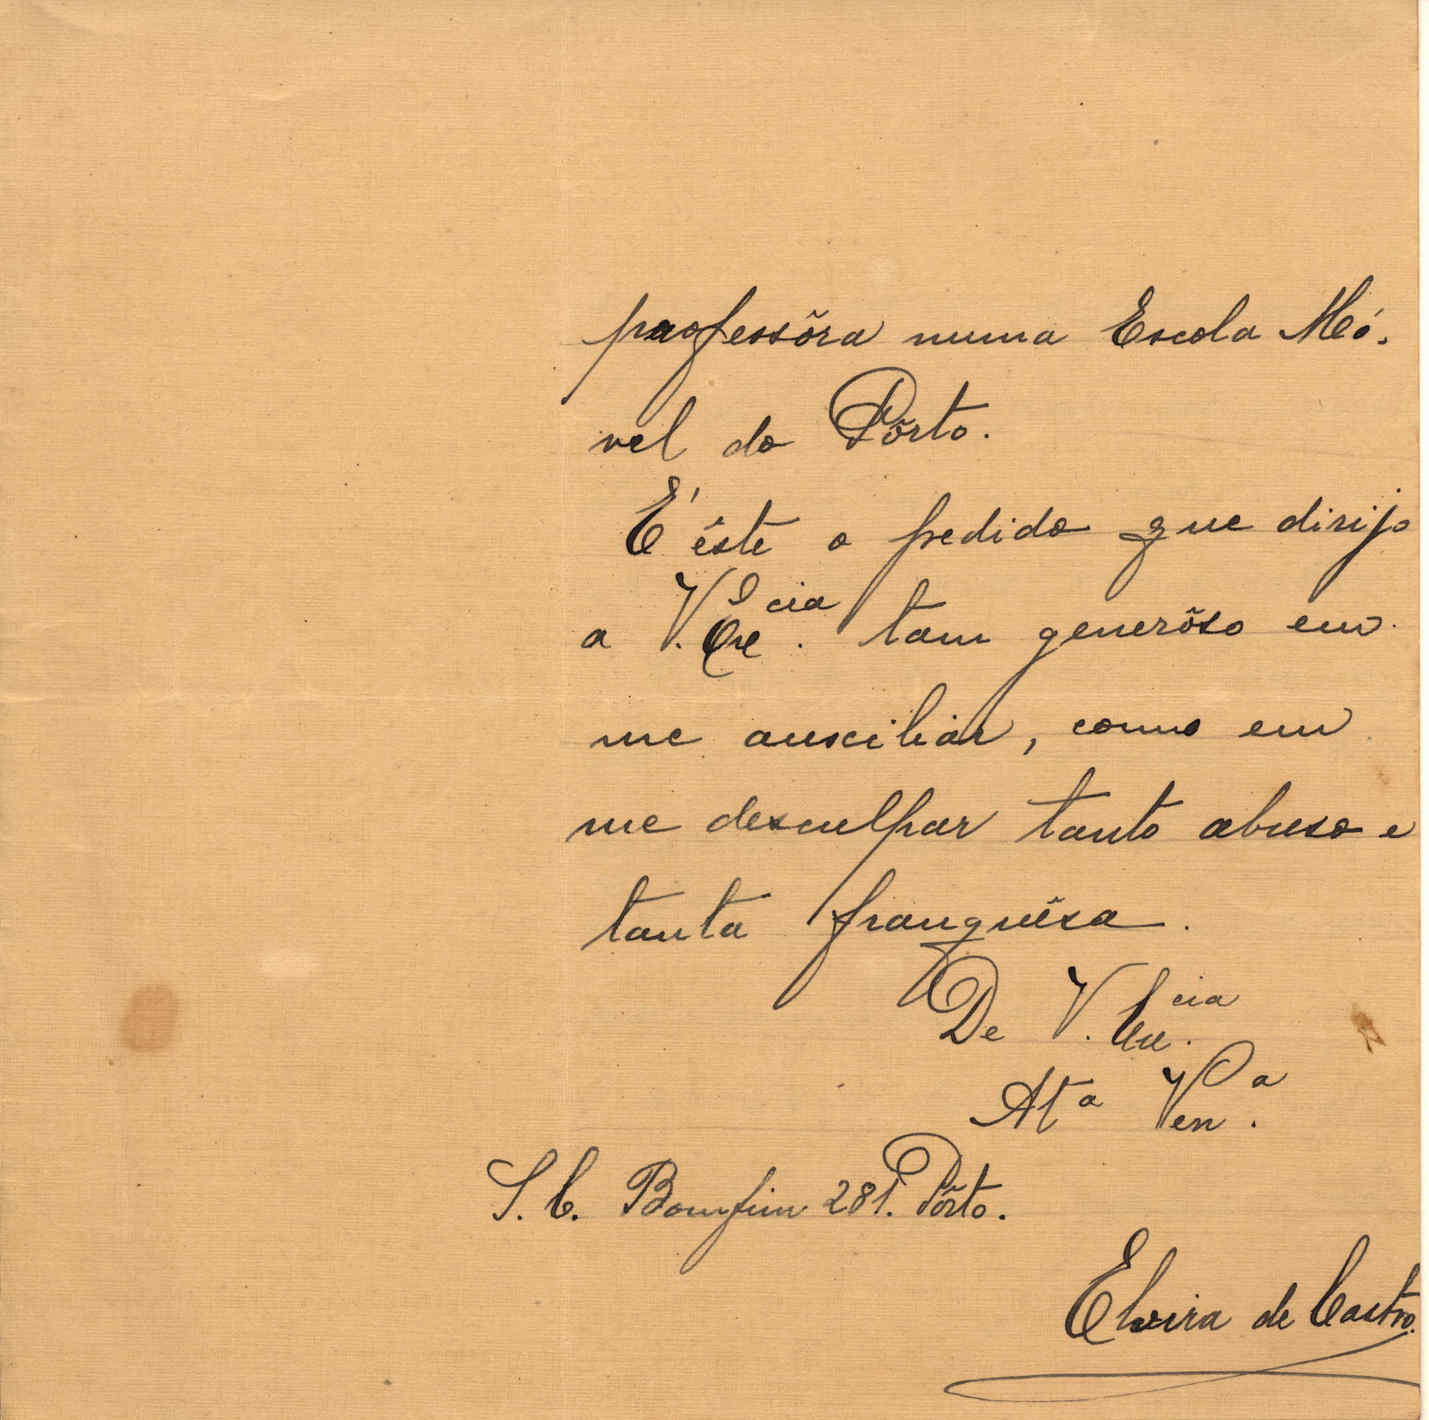 professôra numa Escola Mó-
vel do Pôrto.
É êste o pedido que dirijo
a V. Ex.cia tam generôso em
me auxiliar, como em
me desculpar tanto abuso e
tanta franquêsa.
De V. Ex.cia
At.a Ven.a
S. C. Bomfim 281. Pôrto.
Elvira de Castro.